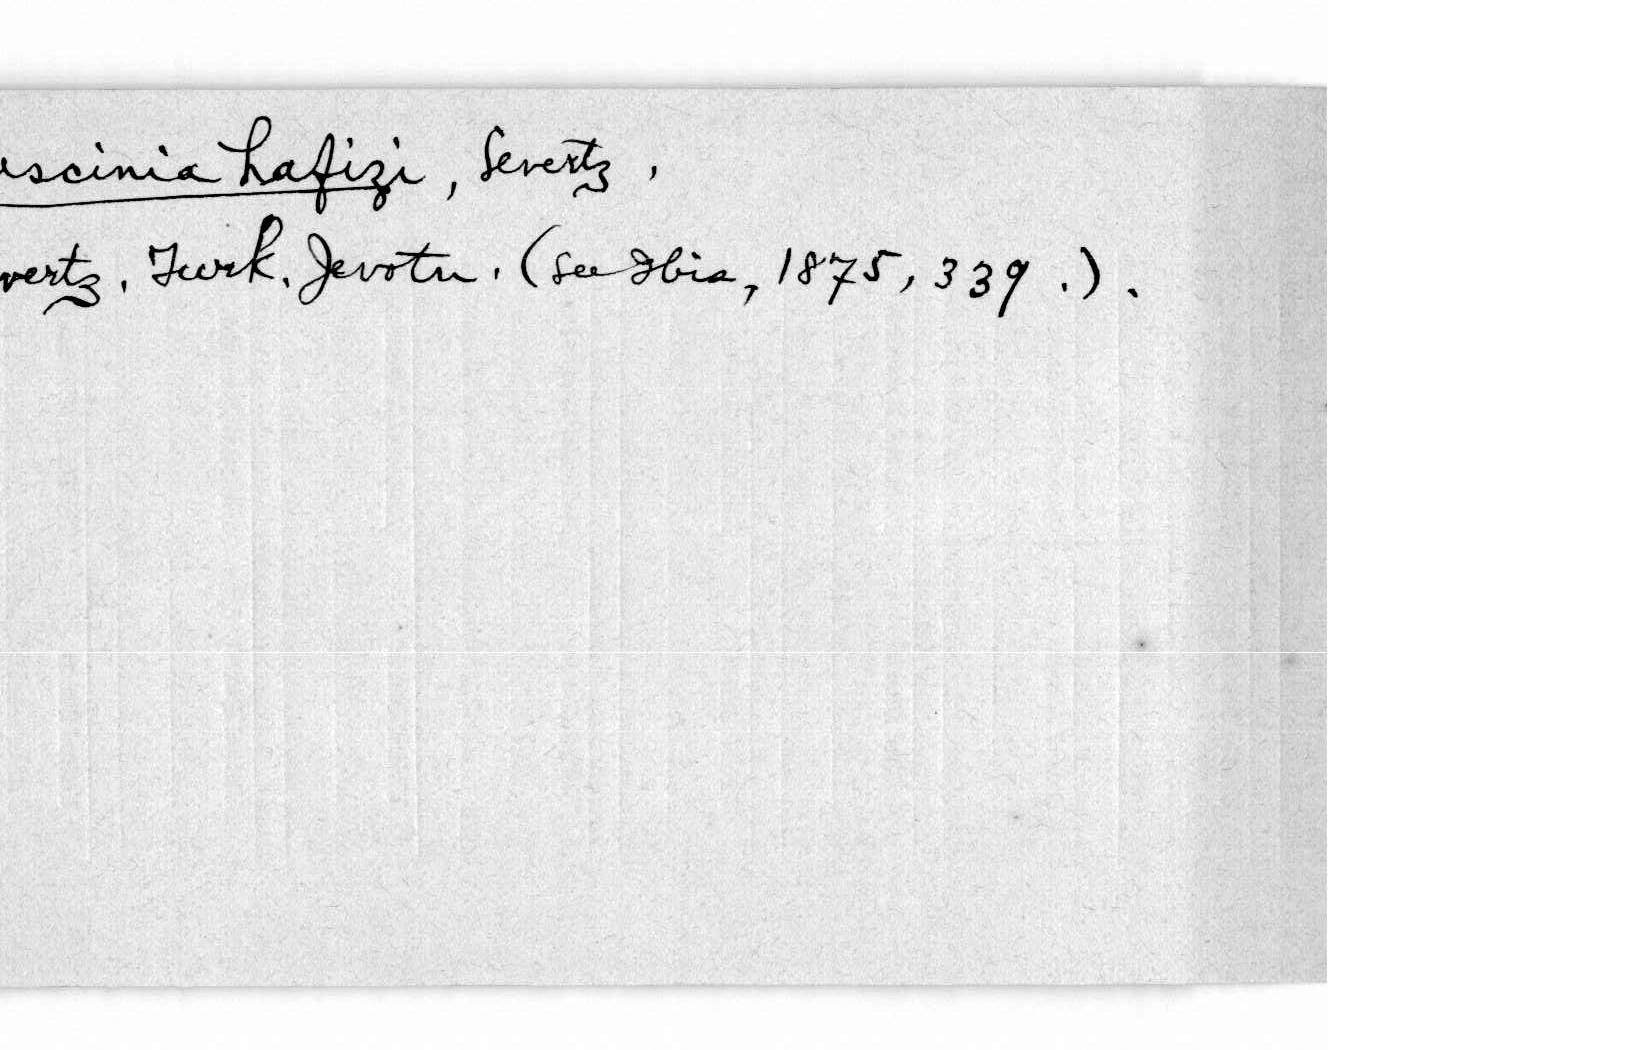 uscinia hafizi, Severtz.
vertz. Turk. Jevotn. (See Ibis, 1875, 339.).